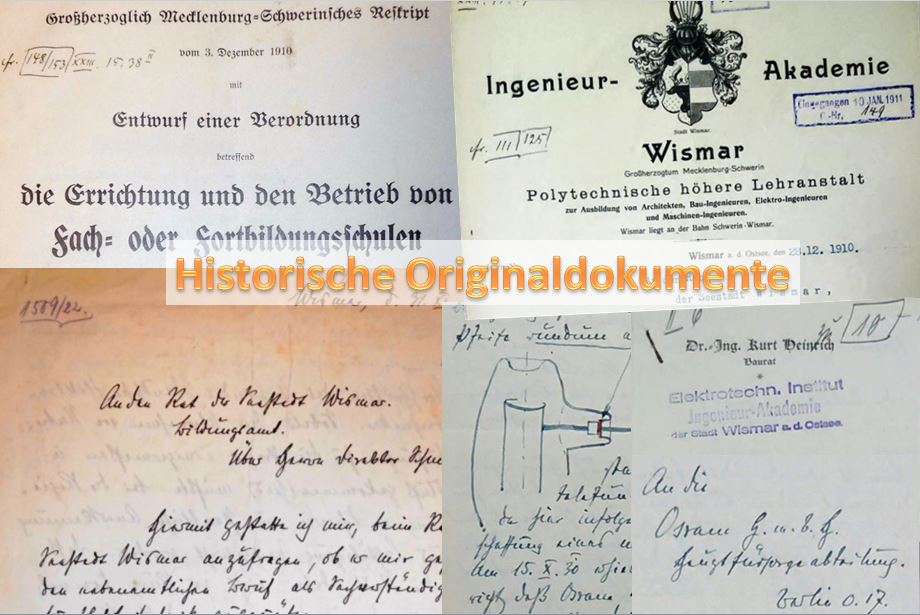 Großherzoglich Mecklenburg=Schwerinsches Reskript
vom 3. Dezember 1910
148/153/XXIII
mit
Entwurf einer Verordnung
betreffend
die Errichtung und den Betrieb von
Fach= oder Fortbildungsschulen
Ingenieur-Akademie
Stadt Wismar.
Eingegangen 10 JAN. 1911
149
III 125
Wismar
Großherzogtum Mecklenburg-Schwerin
Polytechnische höhere Lehranstalt
zur Ausbildung von Architekten, Bau-Ingenieuren, Elektro-Ingenieuren
und Maschinen-Ingenieuren.
Wismar liegt an der Bahn Schwerin-Wismar.
Wismar a. d. Ostsee, den 28.12. 1910.
der Seestadt Wismar,
Historische Originaldokumente
1589/22.
An den Rat der Seestadt Wismar.
Bildungsamt.
Über Herrn Direktor
Hiermit gestatte ich mir, beim
Seestadt Wismar anzufragen, ob er mir
den nebenamtlichen Beruf als Sachverständig
Pfeife rundum
da hier infolge
schaffung eines
Am 15. X. 30
daß Osram
10
Dr.-Ing. Kurt Heinrich
Baurat
Elektrotechn. Institut
Ingenieur-Akademie
der Stadt Wismar a. d. Ostsee.
An die
Osram G. m. b. H.
Berlin O. 17.